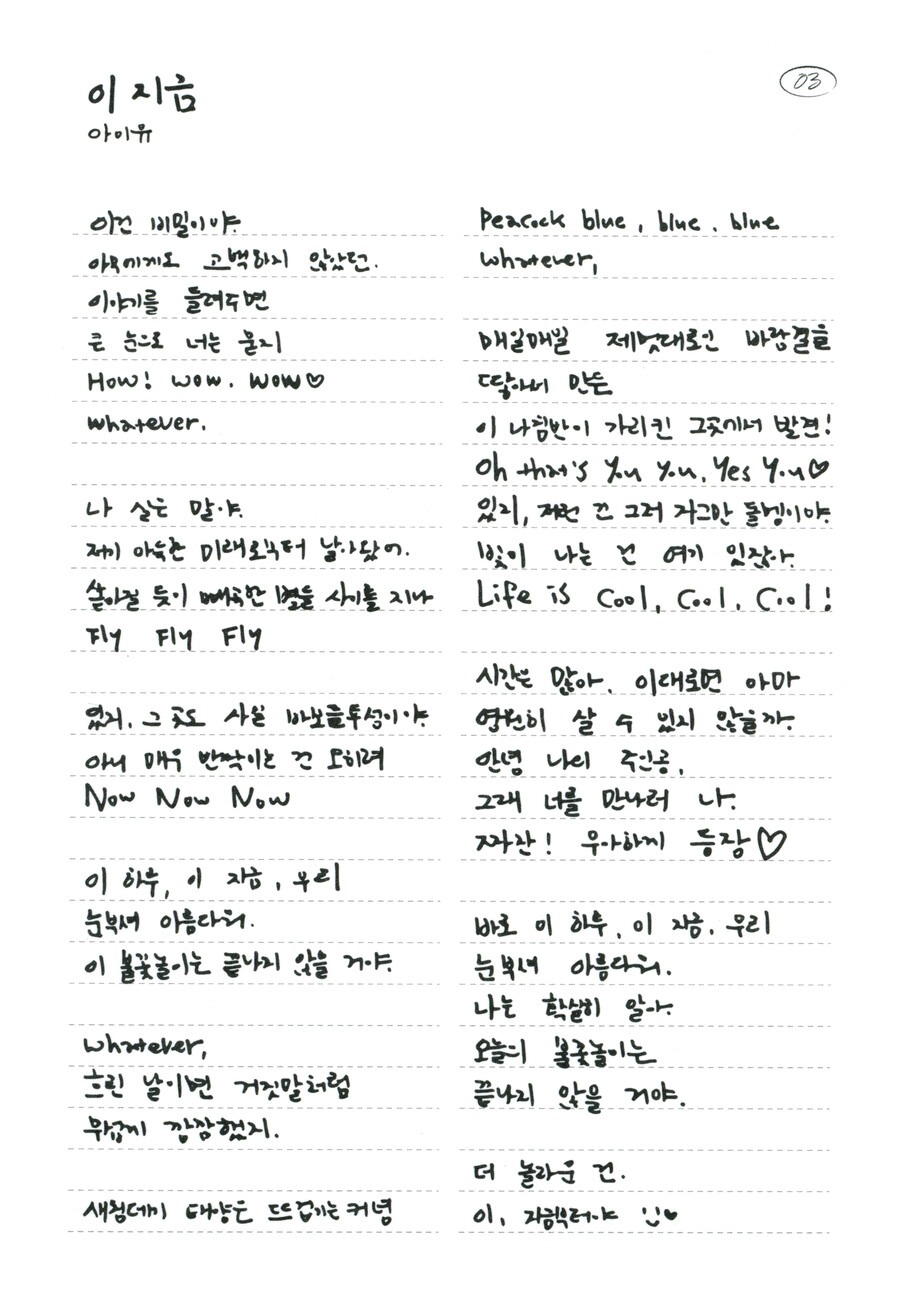 이 지금
03
아이유
이건 비밀이야.
아무에게도 고백하지 않았던.
이야기를 들려주면
큰 눈으로 너는 묻지
How! wow. wow♡
whatever.
나 실은 말야.
저기 아득한 미래로부터 날아왔어.
쏟아질 듯이 빼곡한 별들 사이를 지나
Fly Fly Fly
있지. 그 곳도 사실 바보들투성이야.
아니 매우 반짝이는 건 오히려
Now Now Now
이 하루, 이 지금, 우리
눈부셔 아름다워.
이 불꽃놀이는 끝나지 않을 거야.
whatever,
흐린 날이면 거짓말처럼
무섭게 깜깜했지.
새침데기 태양은 뜨겁기는커녕
Peacock blue, blue. blue
whatever,
매일매일 제멋대로인 바람결을
땋아서 만든
이 나침반이 가리킨 그곳에서 발견!
Oh that's You You, Yes You♡
있지, 저런 건 그저 자그만 돌멩이야.
빛이 나는 건 여기 있잖아.
Life is Cool, Cool. Cool!
시간은 많아. 이대로면 아마
영원히 살 수 있지 않을까.
안녕 나의 주인공,
그래 너를 만나러 나.
짜잔! 우아하게 등장♡
바로 이 하루, 이 지금. 우리
눈부셔 아름다워.
나는 확실히 알아.
오늘의 불꽃놀이는
끝나지 않을 거야.
더 놀라운 건.
이, 지금부터야 :)♥